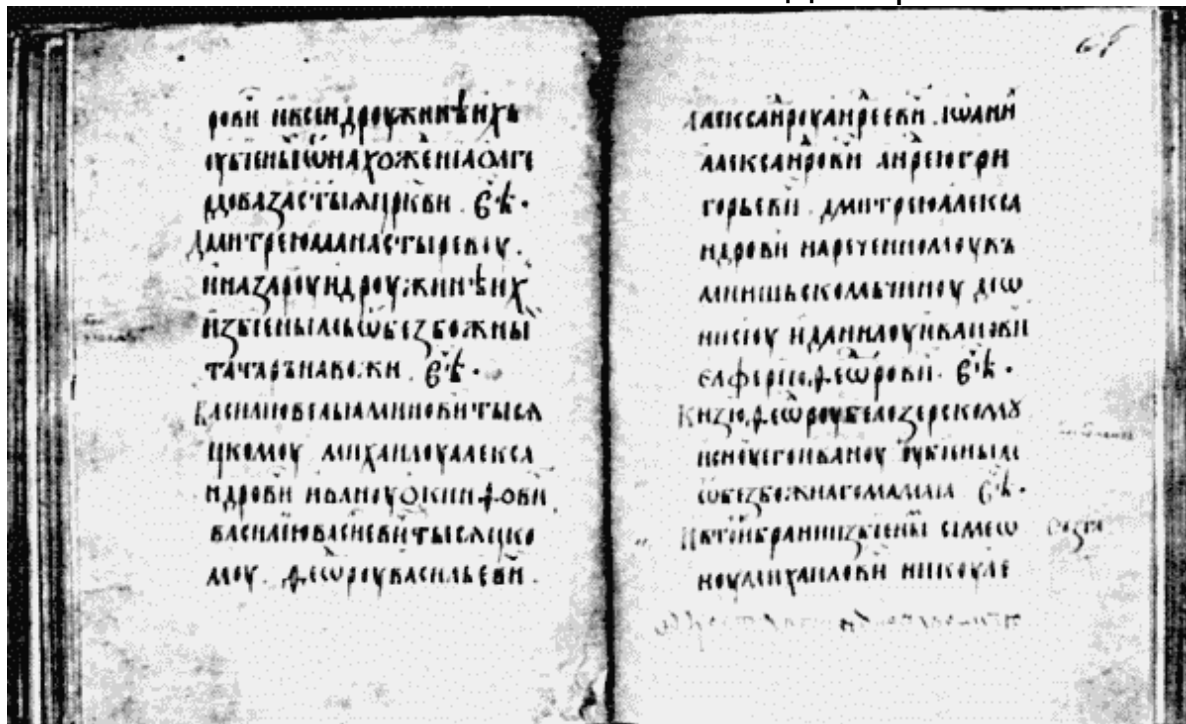 рови и ксендроужинѣ ихъ
оубіены ѿ нахоженіа олге
рдова за стыя цркви вѣ.
Дмитрею манастыревоу.
и назароу и дроужинѣ их
избіеным ѿ безбожны
татаръ на вожи вѣ.
Василию вельаминови тыся
цкомоу михаилоу алекса
ндрови иваноу окинфови
василию васиеви тысяцко
моу. феѡроу васильеви.
алексанроу анрееви. іѡанн
алексанрови анрею гри
горьеви дмитрею алекса
ндрови нареченномоу къ
мнишьском чиноу деѡ
нисіоу и данилоу иванови
елферію феѡрови. вѣ.
Кнзю феѡроу белозерскомꙋ
и сноу его иваноу оубіеным
ѿ безбожнаго мамаіа вѣ.
И в той брани избіены сімеѡ
ноу михаилови никоуле